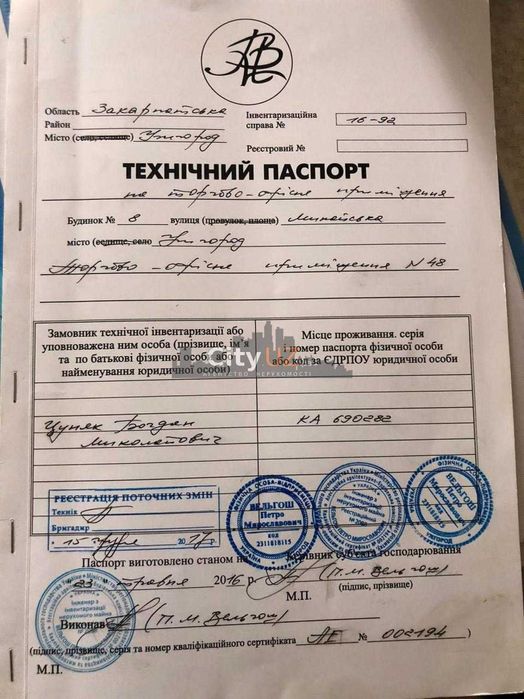 АВЕ
Область Закарпатська
Район
Місто (село, селище) Ужгород
Інвентаризаційна
справа № 16-92
Реєстровий №
ТЕХНІЧНИЙ ПАСПОРТ
на торгово-офісне приміщення
Будинок № 8 вулиця (провулок, площа) Минайська
місто (селище, село Ужгород
Торгово-офісне приміщення N 48
Замовник технічної інвентаризації або
уповноважена ним особа (прізвище, ім'я
та по батькові фізичної особи або
найменування юридичної особи)
Місце проживання. серія
і номер паспорта фізичної особи
або код за ЄДРПОУ юридичної особи
city
АГЕНТСТВО НЕРУХОМОСТІ
Цуняк Богдан
Миколайович
КА 690282
РЕЄСТРАЦІЯ ПОТОЧНИХ ЗМІН
Технік
Бригадир
15 грудня 2017р.
ВЕЛЬГОШ
Петро
Мирославович
код
2311818115
Інженер з
інвентаризації
нерухомого майна
ВЕЛЬГОШ
Петро
Мирославович
УЖГОРОД
Паспорт виготовлено станом на
23 травня 2016 р.
Керівник суб'єкта господарювання
(П.М. Вельгош)
М.П. (підпис, прізвище)
Інженер з
інвентаризації
нерухомого майна
Виконав (П.М. Вельгош)
АЕ № 002194
(підпис, прізвище, серія та номер кваліфікаційного сертифіката)
М.П.